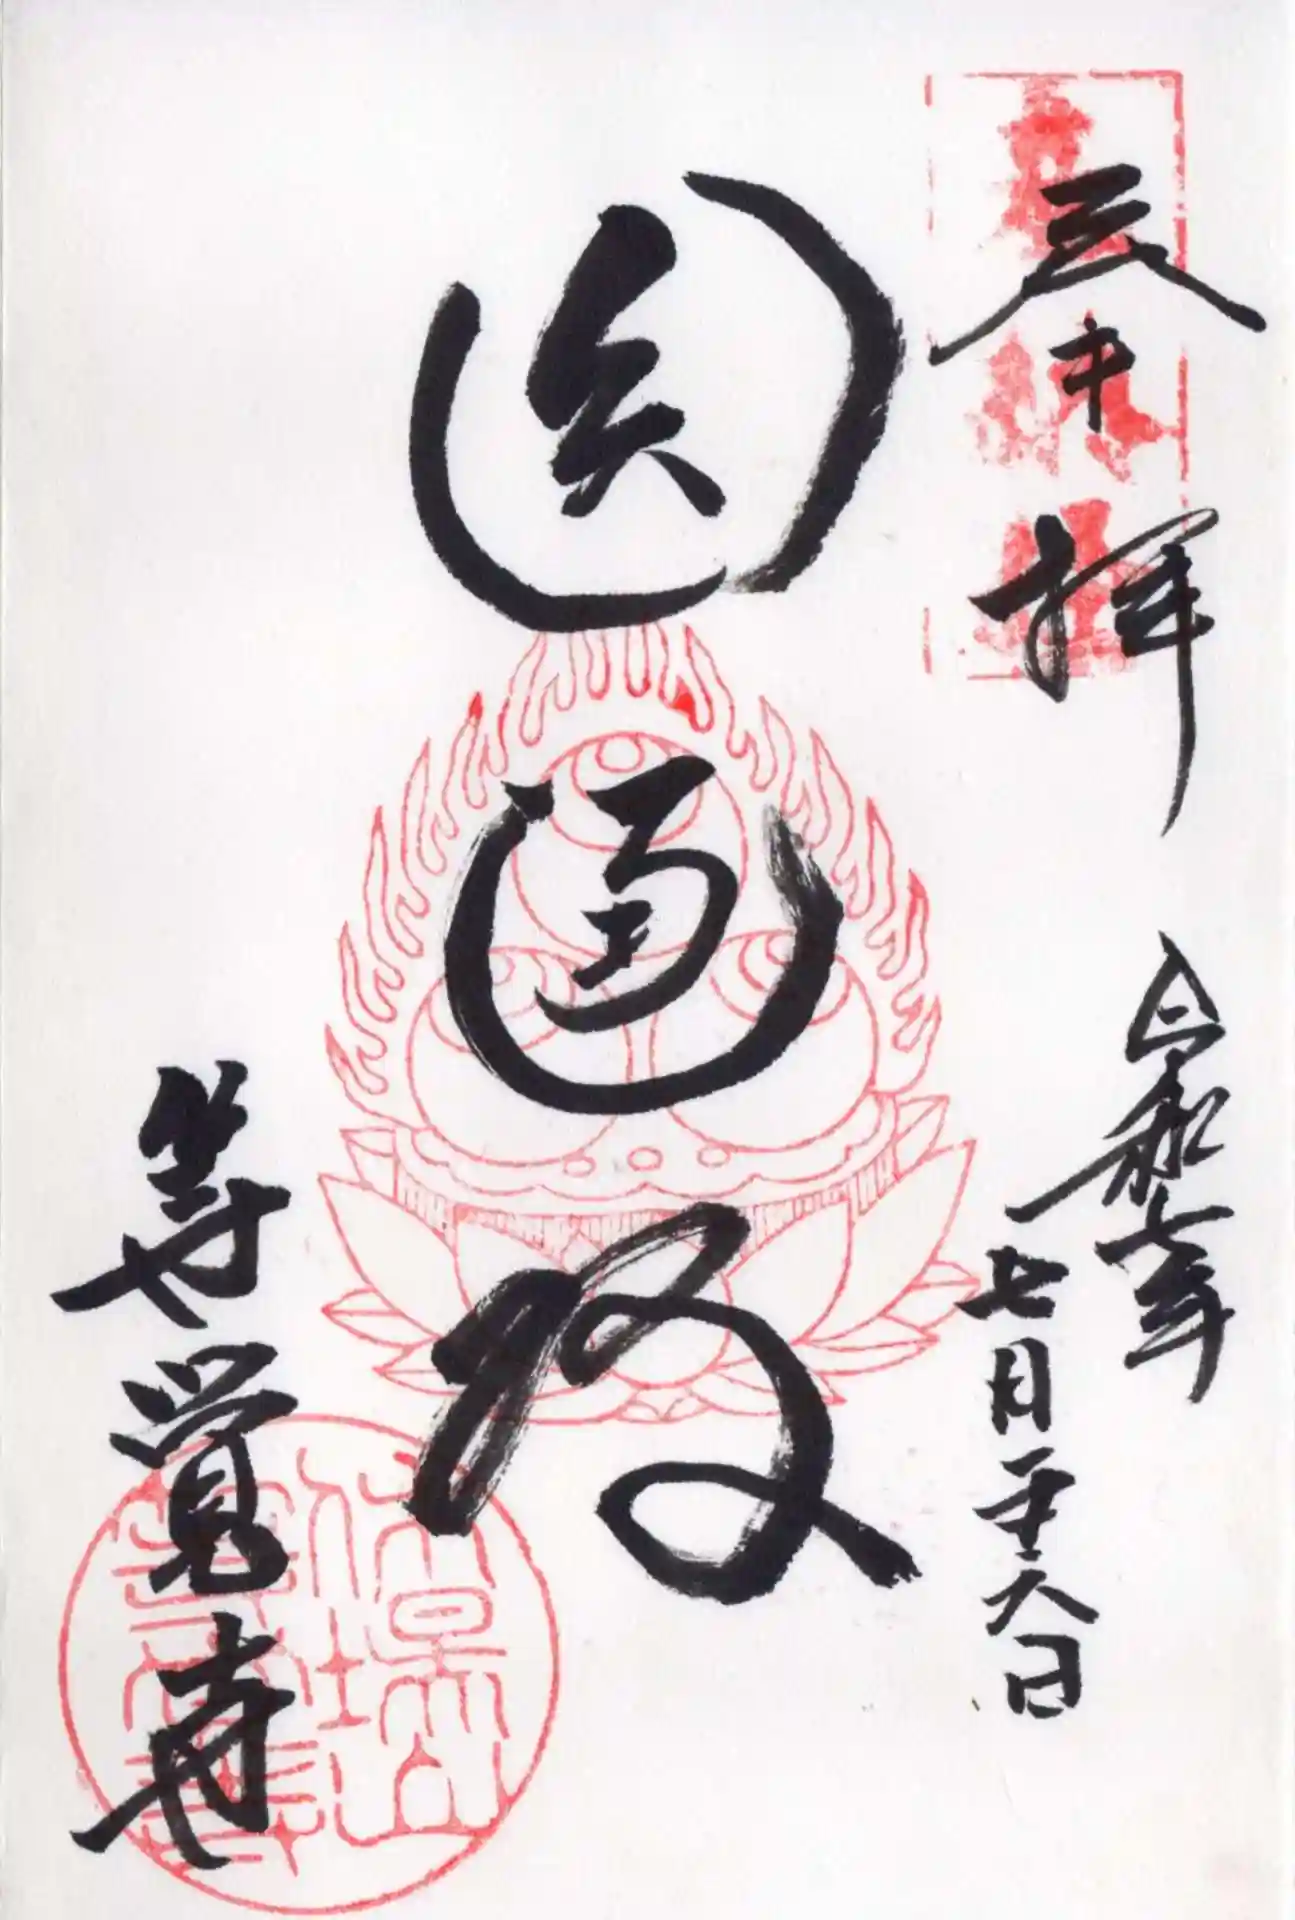 奉拝
令和七年
七月二十六日
圓通殿
等覺寺